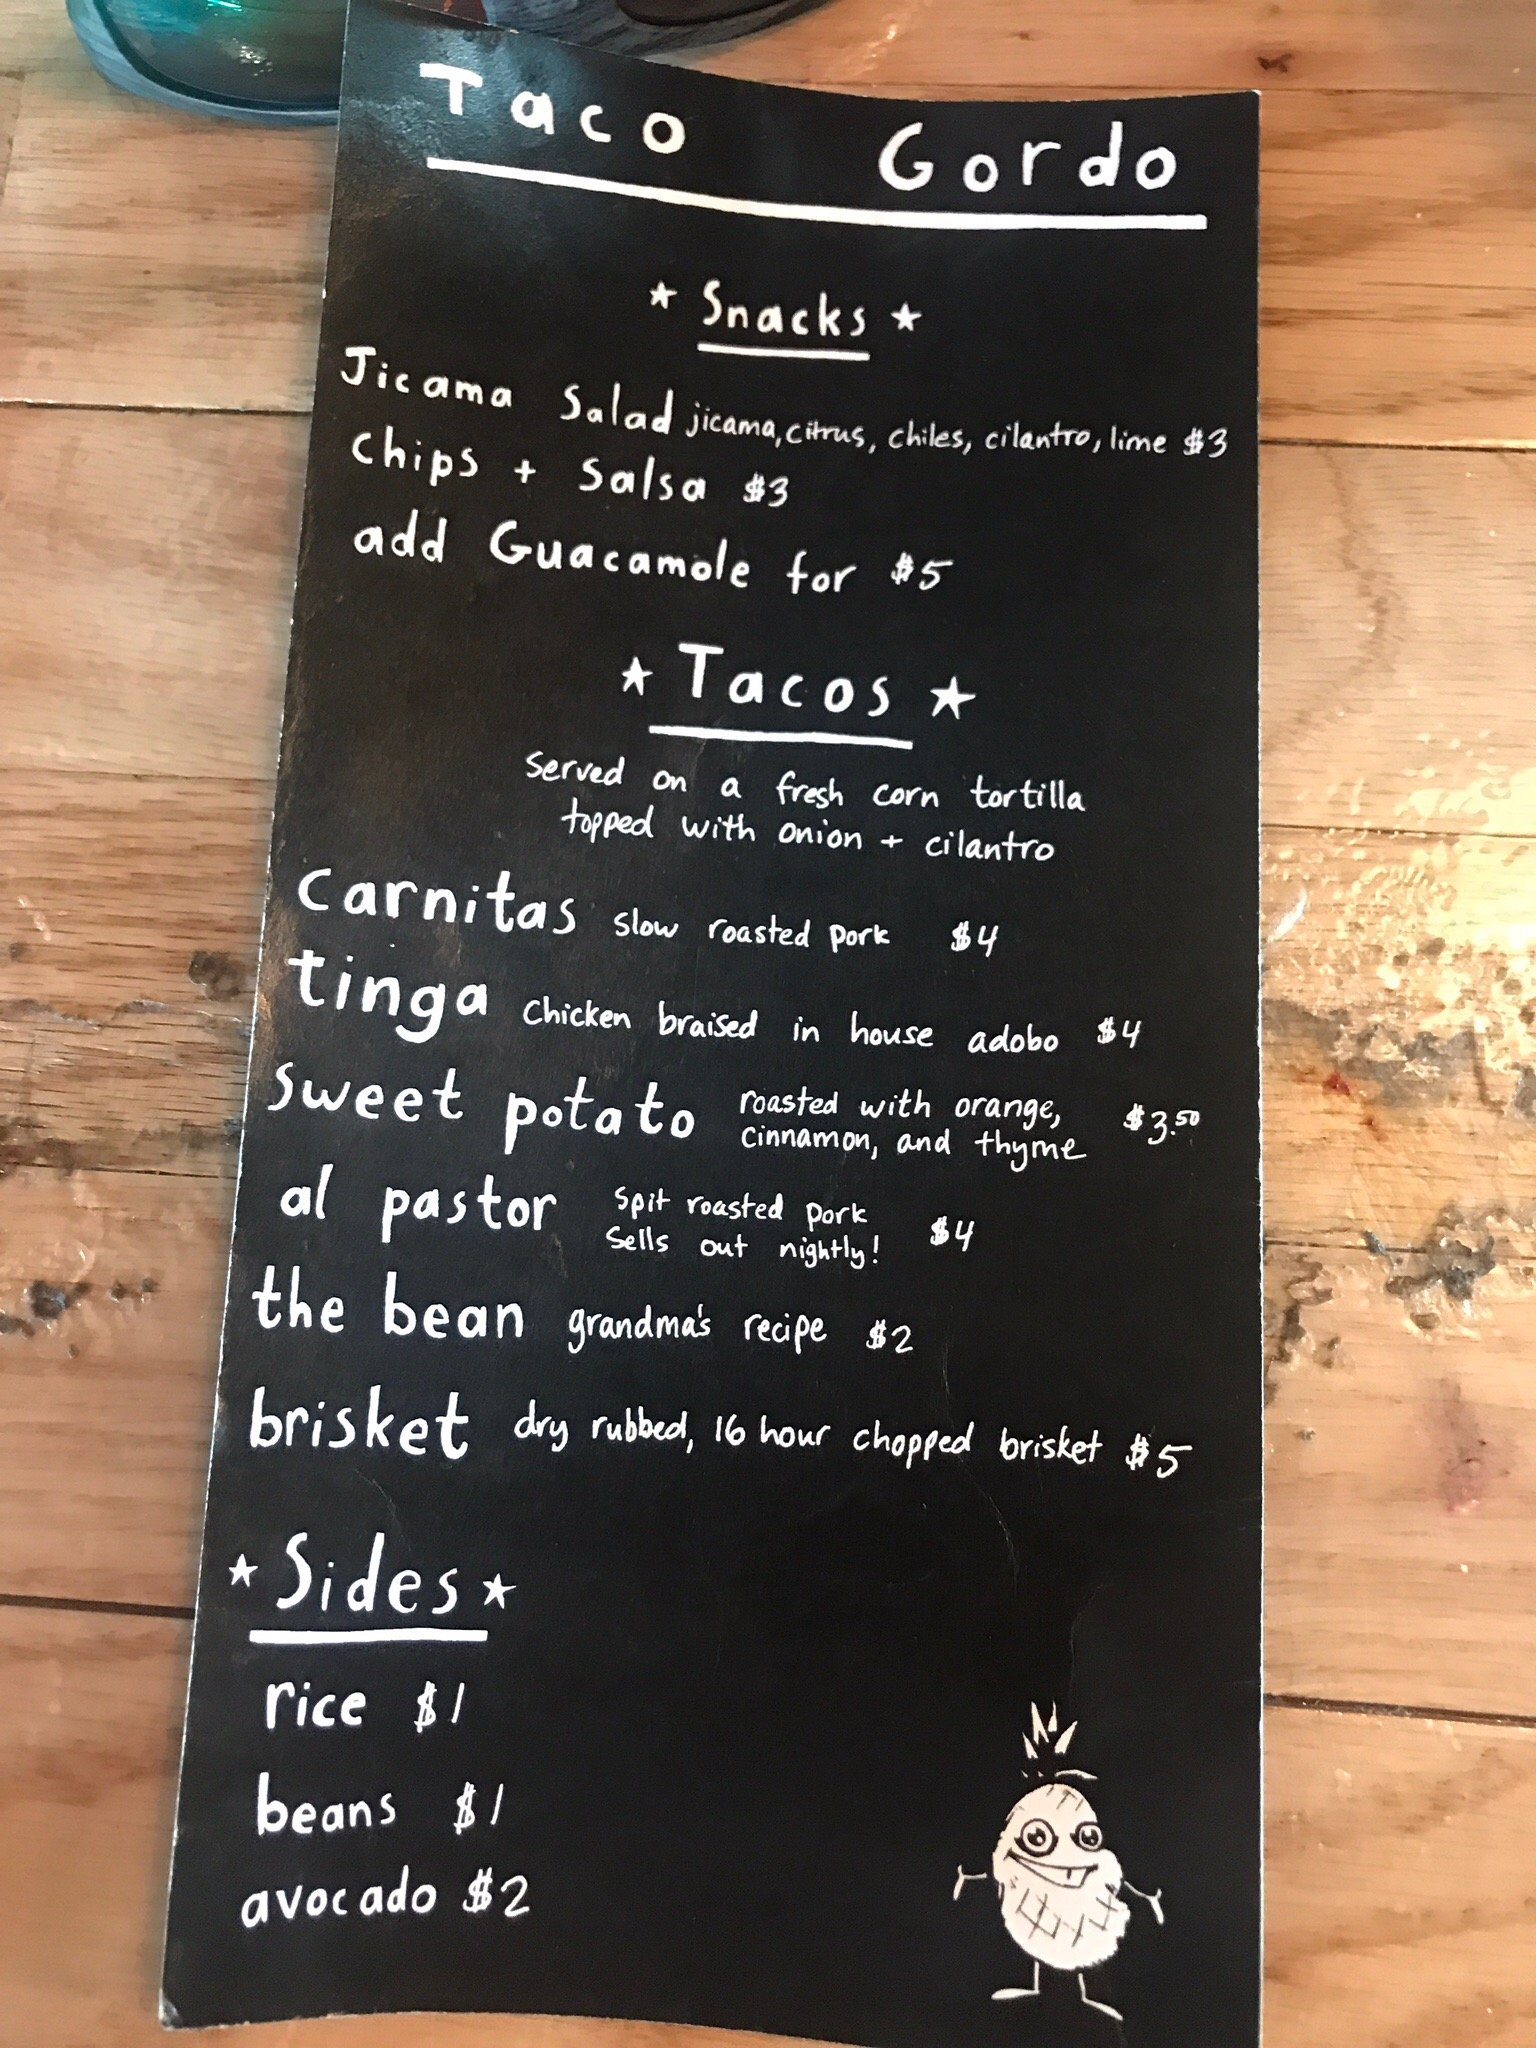 Taco Gordo
★ Snacks ★
Jicama Salad jicama, citrus, chiles, cilantro, lime $3
chips + salsa $3
add Guacamole for $5
★ Tacos ★
served on a fresh corn tortilla
topped with onion + cilantro
carnitas slow roasted pork $4
tinga chicken braised in house adobo $4
sweet potato roasted with orange, cinnamon, and thyme $3.50
al pastor spit roasted pork sells out nightly! $4
the bean grandma's recipe $2
brisket dry rubbed, 16 hour chopped brisket $5
★ Sides ★
rice $1
beans $1
avocado $2